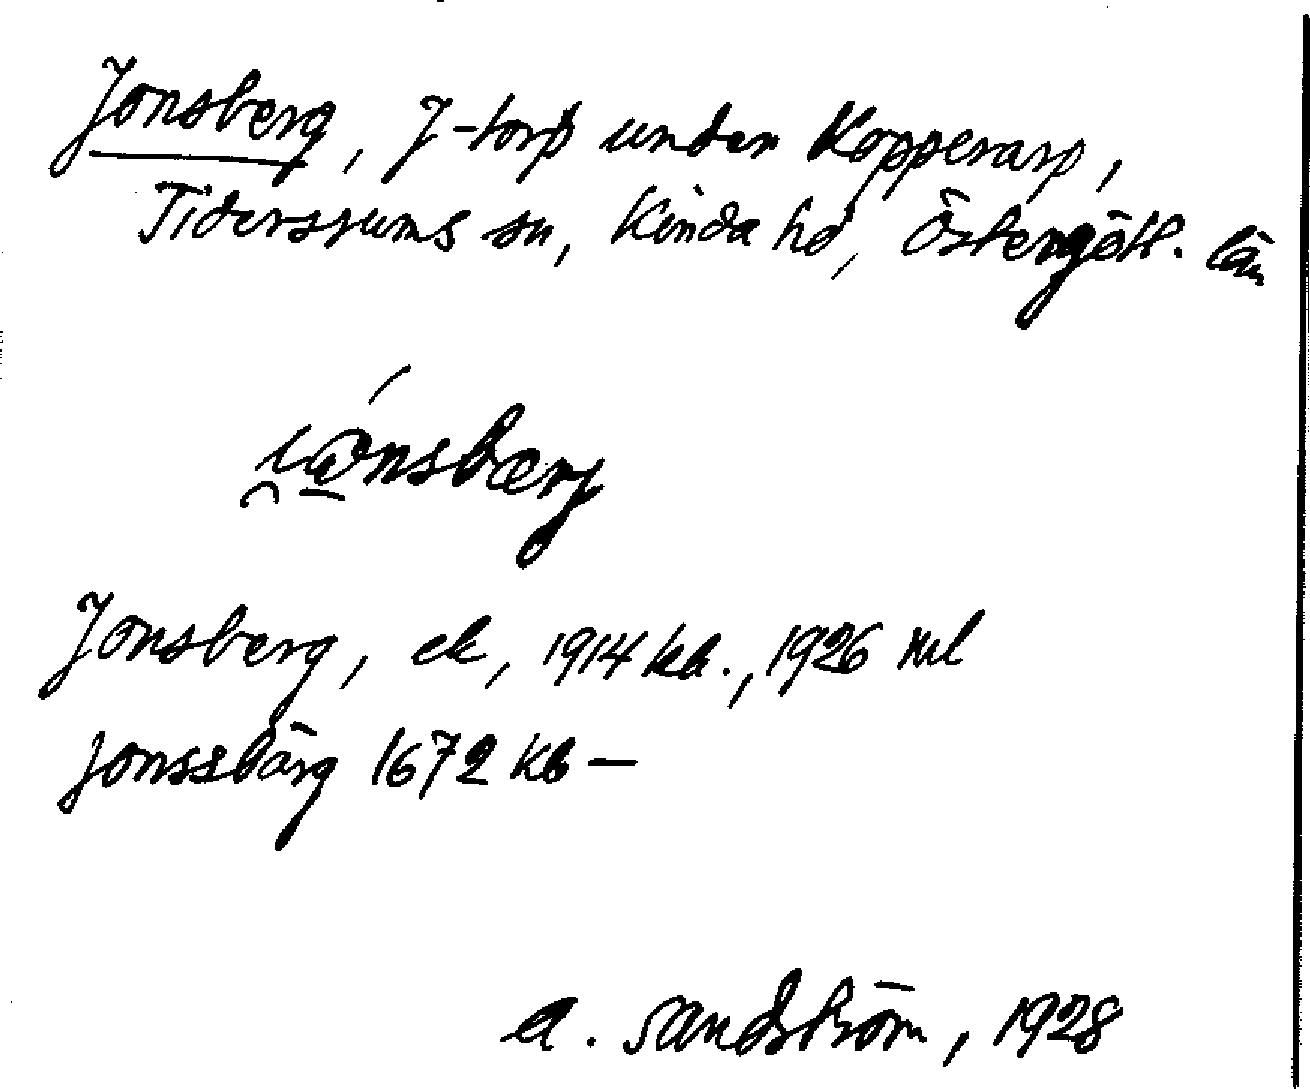 Jonsberg, J-torp under Kopperarp,
Tidersrums sn, Kinda hd, Östergötl. län
Jonsberg, ek, 1914 kk., 1926 ml
Jonssbärg 1672 kb —
A. Sandström, 1928